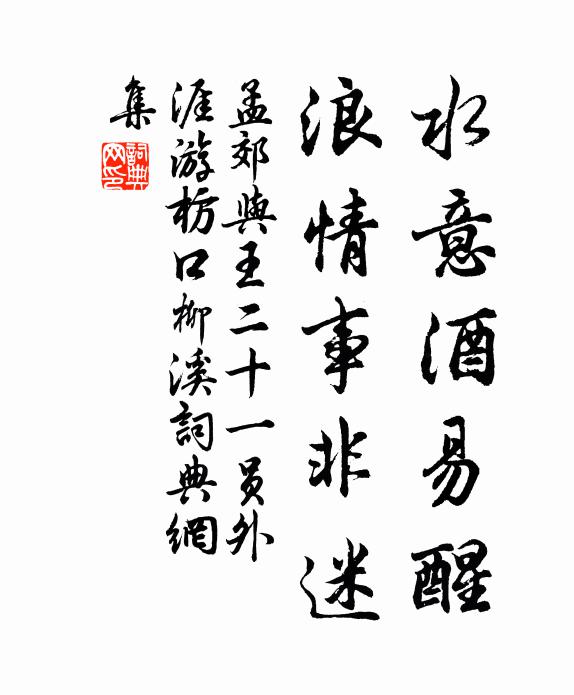 水意酒易醒
浪情事非迷
孟郊與王二十一员外
涯游枋口柳溪詞典網
集
詞典网印